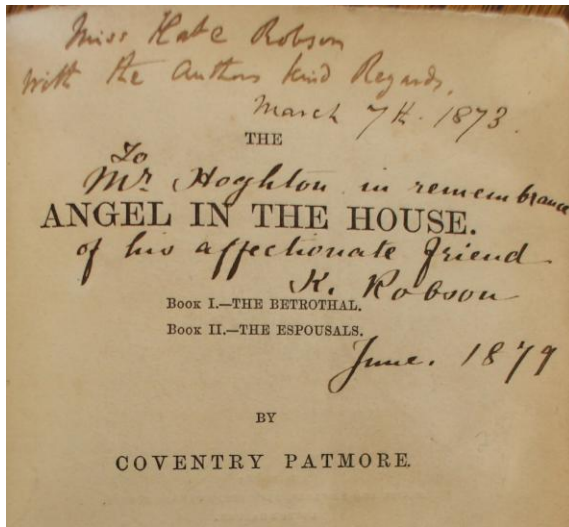 Miss Kate Robson
With the Authors kind Regards,
March 7th. 1873.
THE
To
Mr Hoghton in remembrance
ANGEL IN THE HOUSE.
of his affectionate friend
K. Robson
BOOK I.—THE BETROTHAL.
BOOK II.—THE ESPOUSALS.
June. 1879
BY
COVENTRY PATMORE.